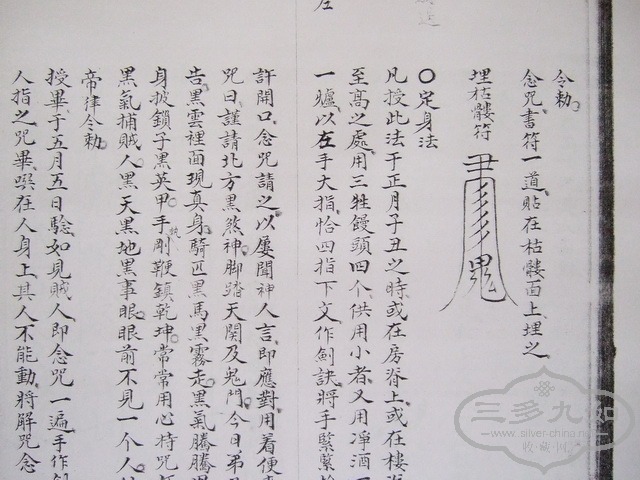 令勅
念咒書符一道貼在枯髏面上埋之
埋枯髏符
○定身法
凡授此法于正月子丑之時或在房脊上或在樓
至高之處用三牲饅頭四个供用小者又用渾酒一
一爐以在手大指恰四指下文作劍訣將手緊緊
許開口念咒請之以屢聞神人言即應對用着便
咒曰謹請北方黑煞神脚踏天関及鬼門今日弟
告黑雲裡面現真身騎匹黑馬黑霧走黑氣騰騰
身披鎖子黑英甲手執剛鞭鎮乾坤常常用心持咒
黑氣捕賊人黑天黑地黑事眼眼前不見一个人
帝律令勅
授畢于五月五日騐如見賊人即念咒一遍手作劍
人指之咒畢喚在人身上其人不能動將解咒念
三多九如
www.silver-china.net
收·藏·网